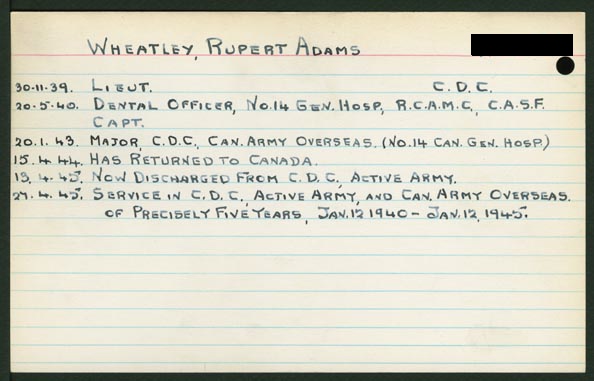 WHEATLEY, RUPERT ADAMS
30.11.39. LIEUT. C.D.C.
20.5.40. DENTAL OFFICER, NO.14 GEN. HOSP, R.C.A.M.C, C.A.S.F.
CAPT.
20.1.43. MAJOR, C.D.C, CAN. ARMY OVERSEAS. (NO.14 CAN. GEN. HOSP.)
15.4.44. HAS RETURNED TO CANADA.
13.4.45. NOW DISCHARGED FROM C.D.C, ACTIVE ARMY.
27.4.45. SERVICE IN C.D.C, ACTIVE ARMY, AND CAN. ARMY OVERSEAS.
OF PRECISELY FIVE YEARS, JAN. 12 1940 - JAN. 12, 1945.